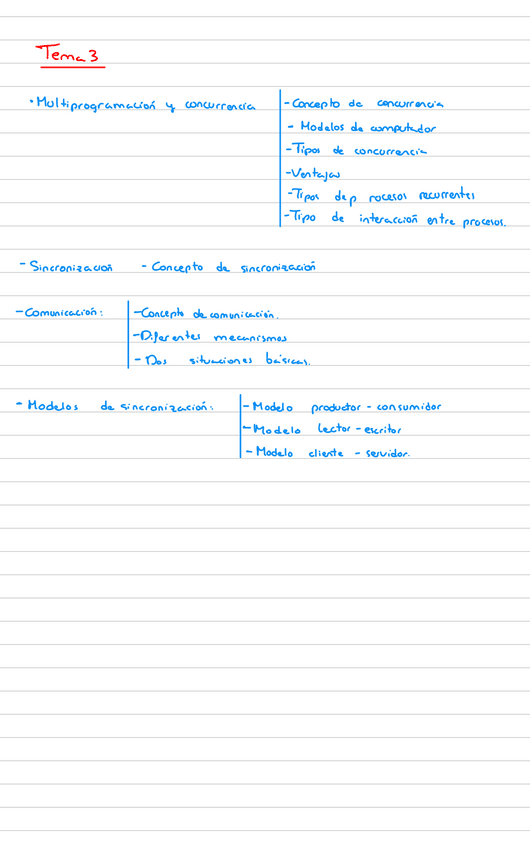 Tema 3
• Multiprogramación y concurrencia
- Concepto de concurrencia
- Modelos de computador
- Tipos de concurrencia
- Ventajas
- Tipos dep rocesos recurrentes
- Tipo de interacción entre procesos.
- Sincronización - Concepto de sincronización
- Comunicación:
- Concepto de comunicación.
- Diferentes mecanismos
- Dos situaciones básicas.
- Modelos de sincronización:
- Modelo productor - consumidor
- Modelo lector - escritor
- Modelo cliente - servidor.